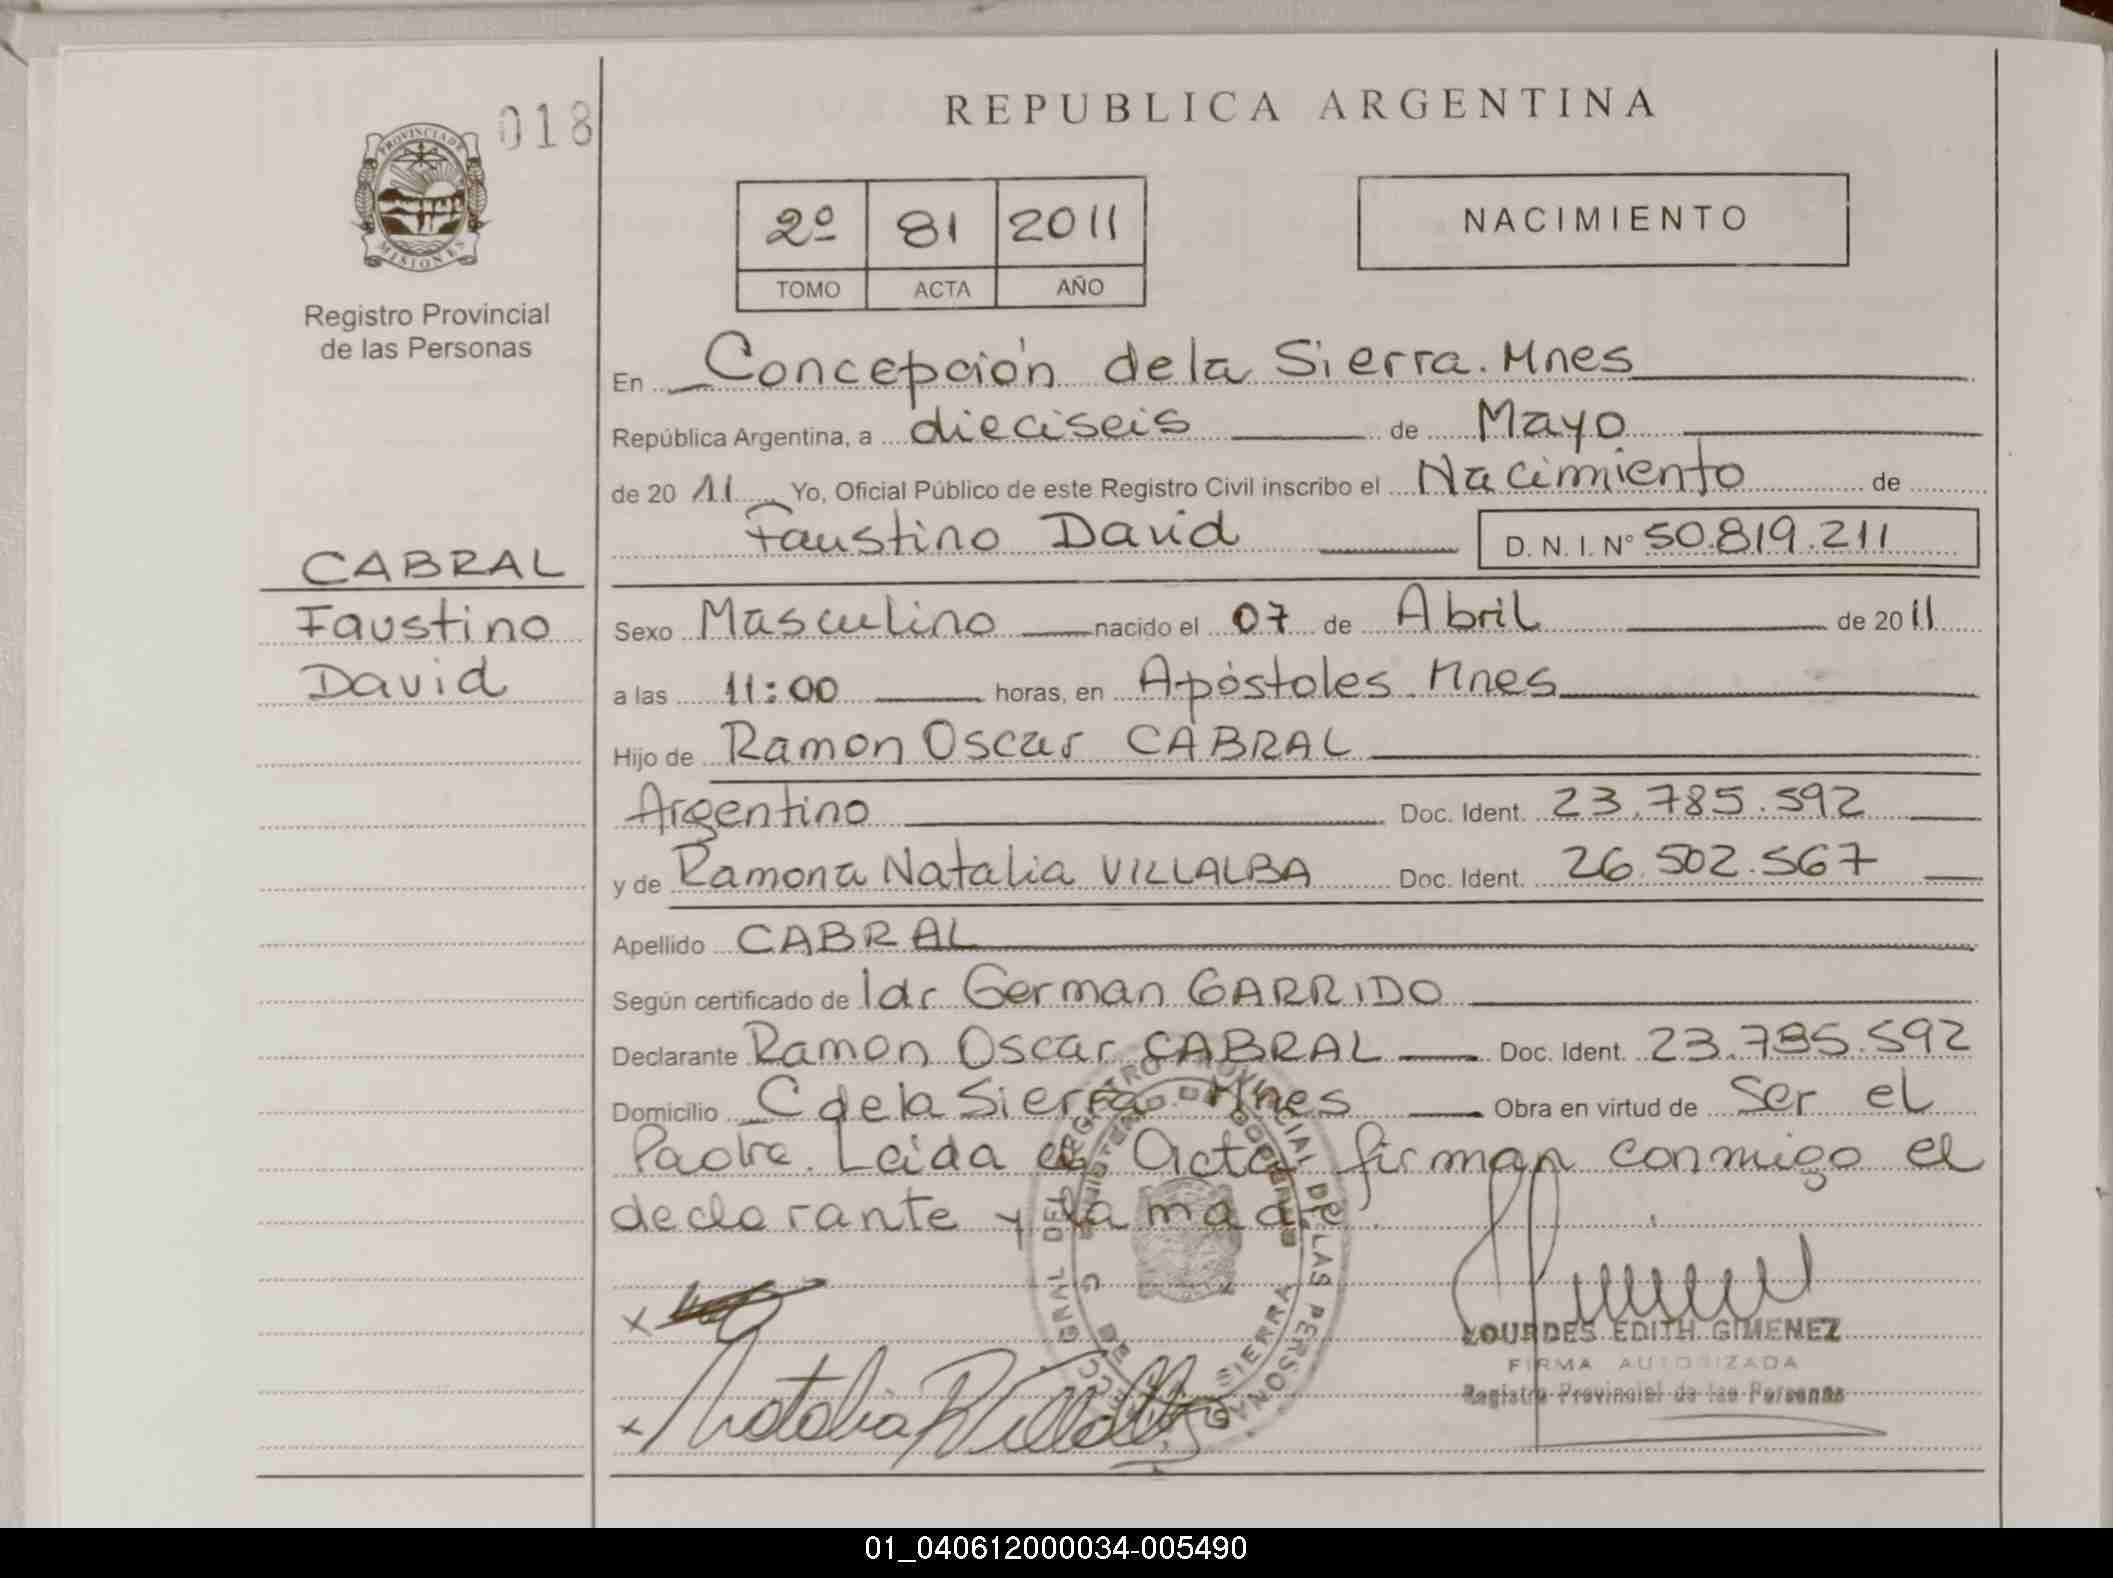 018
PROVINCIA DE
MISIONES
Registro Provincial
de las Personas
CABRAL
Faustino
David
REPUBLICA ARGENTINA
2º 81 2011
TOMO ACTA AÑO
NACIMIENTO
En Concepción de la Sierra. Mnes
República Argentina, a dieciseis de Mayo
de 20 11 Yo, Oficial Público de este Registro Civil inscribo el Nacimiento de
Faustino David D. N. I. Nº 50.819.211
Sexo Masculino nacido el 07 de Abril de 20 11
a las 11:00 horas, en Apóstoles. Mnes
Hijo de Ramon Oscar CABRAL
Argentino Doc. Ident. 23.785.592
y de Ramona Natalia VILLALBA Doc. Ident. 26.502.567
Apellido CABRAL
Según certificado de Idr German GARRIDO
Declarante Ramon Oscar CABRAL Doc. Ident. 23.785.592
Domicilio C de la Sierra Mnes Obra en virtud de Ser el
Padre. Leida el Acta firman conmigo el
declarante y la madre.
LOURDES EDITH GIMENEZ
FIRMA AUTORIZADA
Registro Provincial de las Personas
01_040612000034-005490